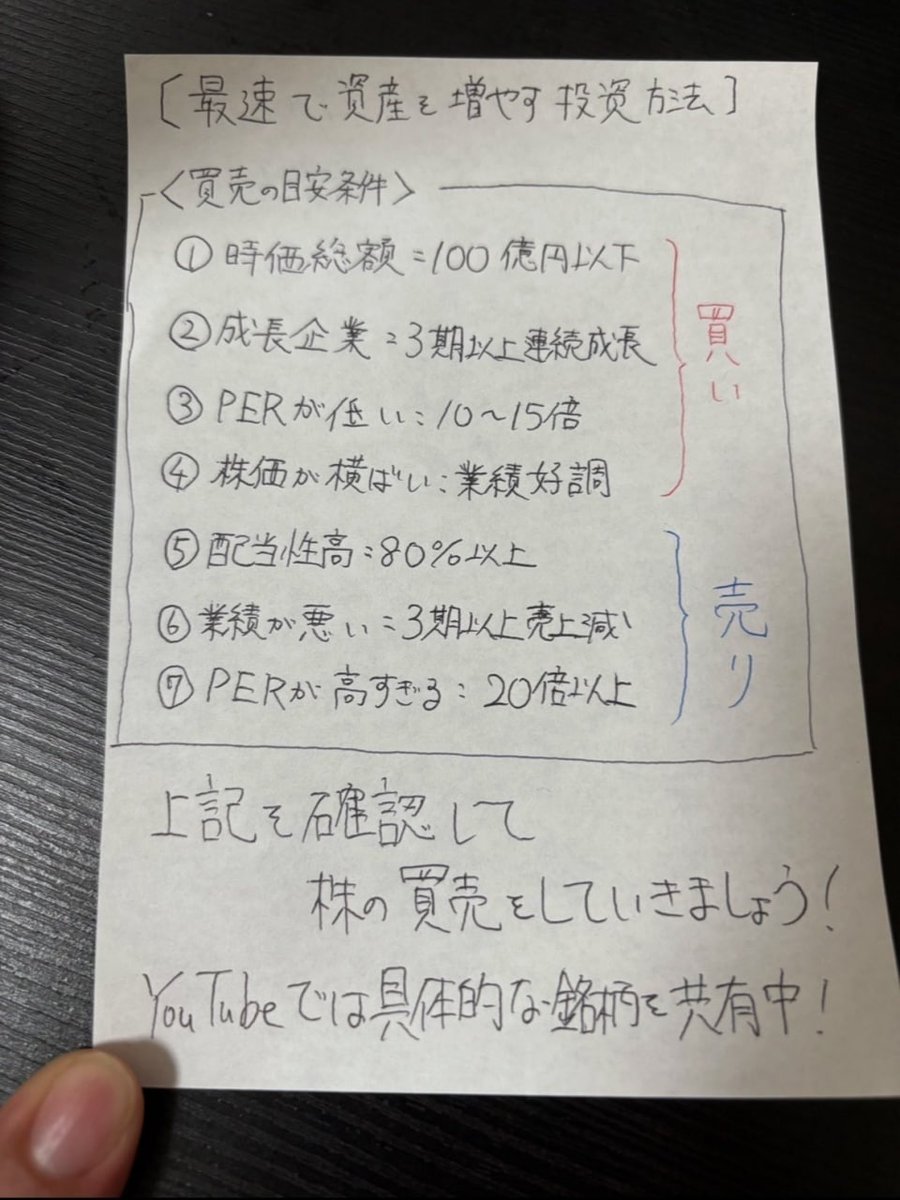 〔最速で資産を増やす投資方法〕
〈買売の目安条件〉
① 時価総額:100億円以下
② 成長企業:3期以上連続成長
③ PERが低い:10〜15倍
④ 株価が横ばい:業績好調
買い
⑤ 配当性高:80%以上
⑥ 業績が悪い:3期以上売上減
⑦ PERが高すぎる:20倍以上
売り
上記を確認して
株の買売をしていきましょう!
YouTubeでは具体的な銘柄を共有中!